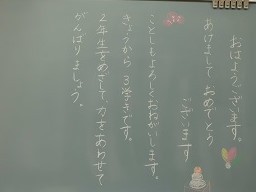 おはようございます。
あけまして おめでとう
ございます
ことしもよろしくおねがいします。
きょうから 3学きです。
2年生をめざして、力をあわせて
がんばりましょう。